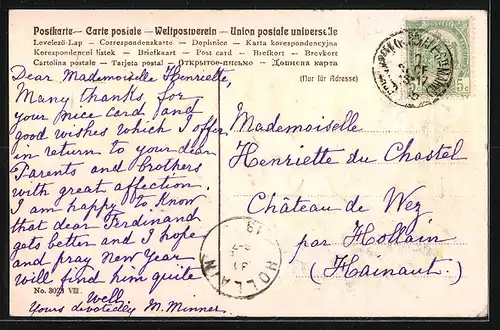 Postkarte— Carte postale — Weltpostverein — Union postale universelle
Levelező-Lap — Correspondenzkarte — Dopisnice — Karta korespondencyjna
Korespondenční lístek — Briefkaart — Post card — Brefkort — Brevkort
Cartolina postale — Tarjeta postal — Открытое письмо — Дописна карта
(Nur für Adresse)
5c
Dear Mademoiselle Henriette,
Many thanks for
your nice card and
good wishes which I offer
in return to your dear
Parents and brothers
with great affection.
I am happy to know
that dear Ferdinand
gets better and I hope
and pray New Year
will find him quite
well
Yours divotedly M. Minner
No. 3023 VIII.
Mademoiselle
Henriette du Chastel
Château de Wez
par Hollain
(Hainaut)
HOLLAIN
31